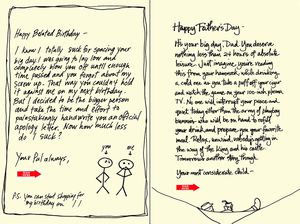 Happy Belated Birthday -
I know I totally suck for spacing your
big day! I was going to play low and
completely blow you off until enough
time passed and you forgot about my
screw up. That way you couldn't hold
it against me on my next birthday.
But I decided to be the bigger person
and take the time and effort to
painstakingly handwrite you an official
apology letter. Now how much less
do I suck?
Your Pal always,
you
me
P.S. You can start shopping for
my birthday on
Happy Father's Day -
It's your big day, Dad. You deserve
nothing less than 24 hours of absolute
leisure. Just imagine, you're reading
this from your hammock, while drinking
a cold one as you take a puff off your cigar
and watch the game on your 100-inch plasma
TV. No one will interrupt your peace and
quiet today other than the array of playful
bunnies who will be on hand to refill
your drink and prepare you your favorite
meal. Relax, unwind, nobody's getting in
the way of the king and his castle.
Tomorrow's another story though.
Your most considerate child -